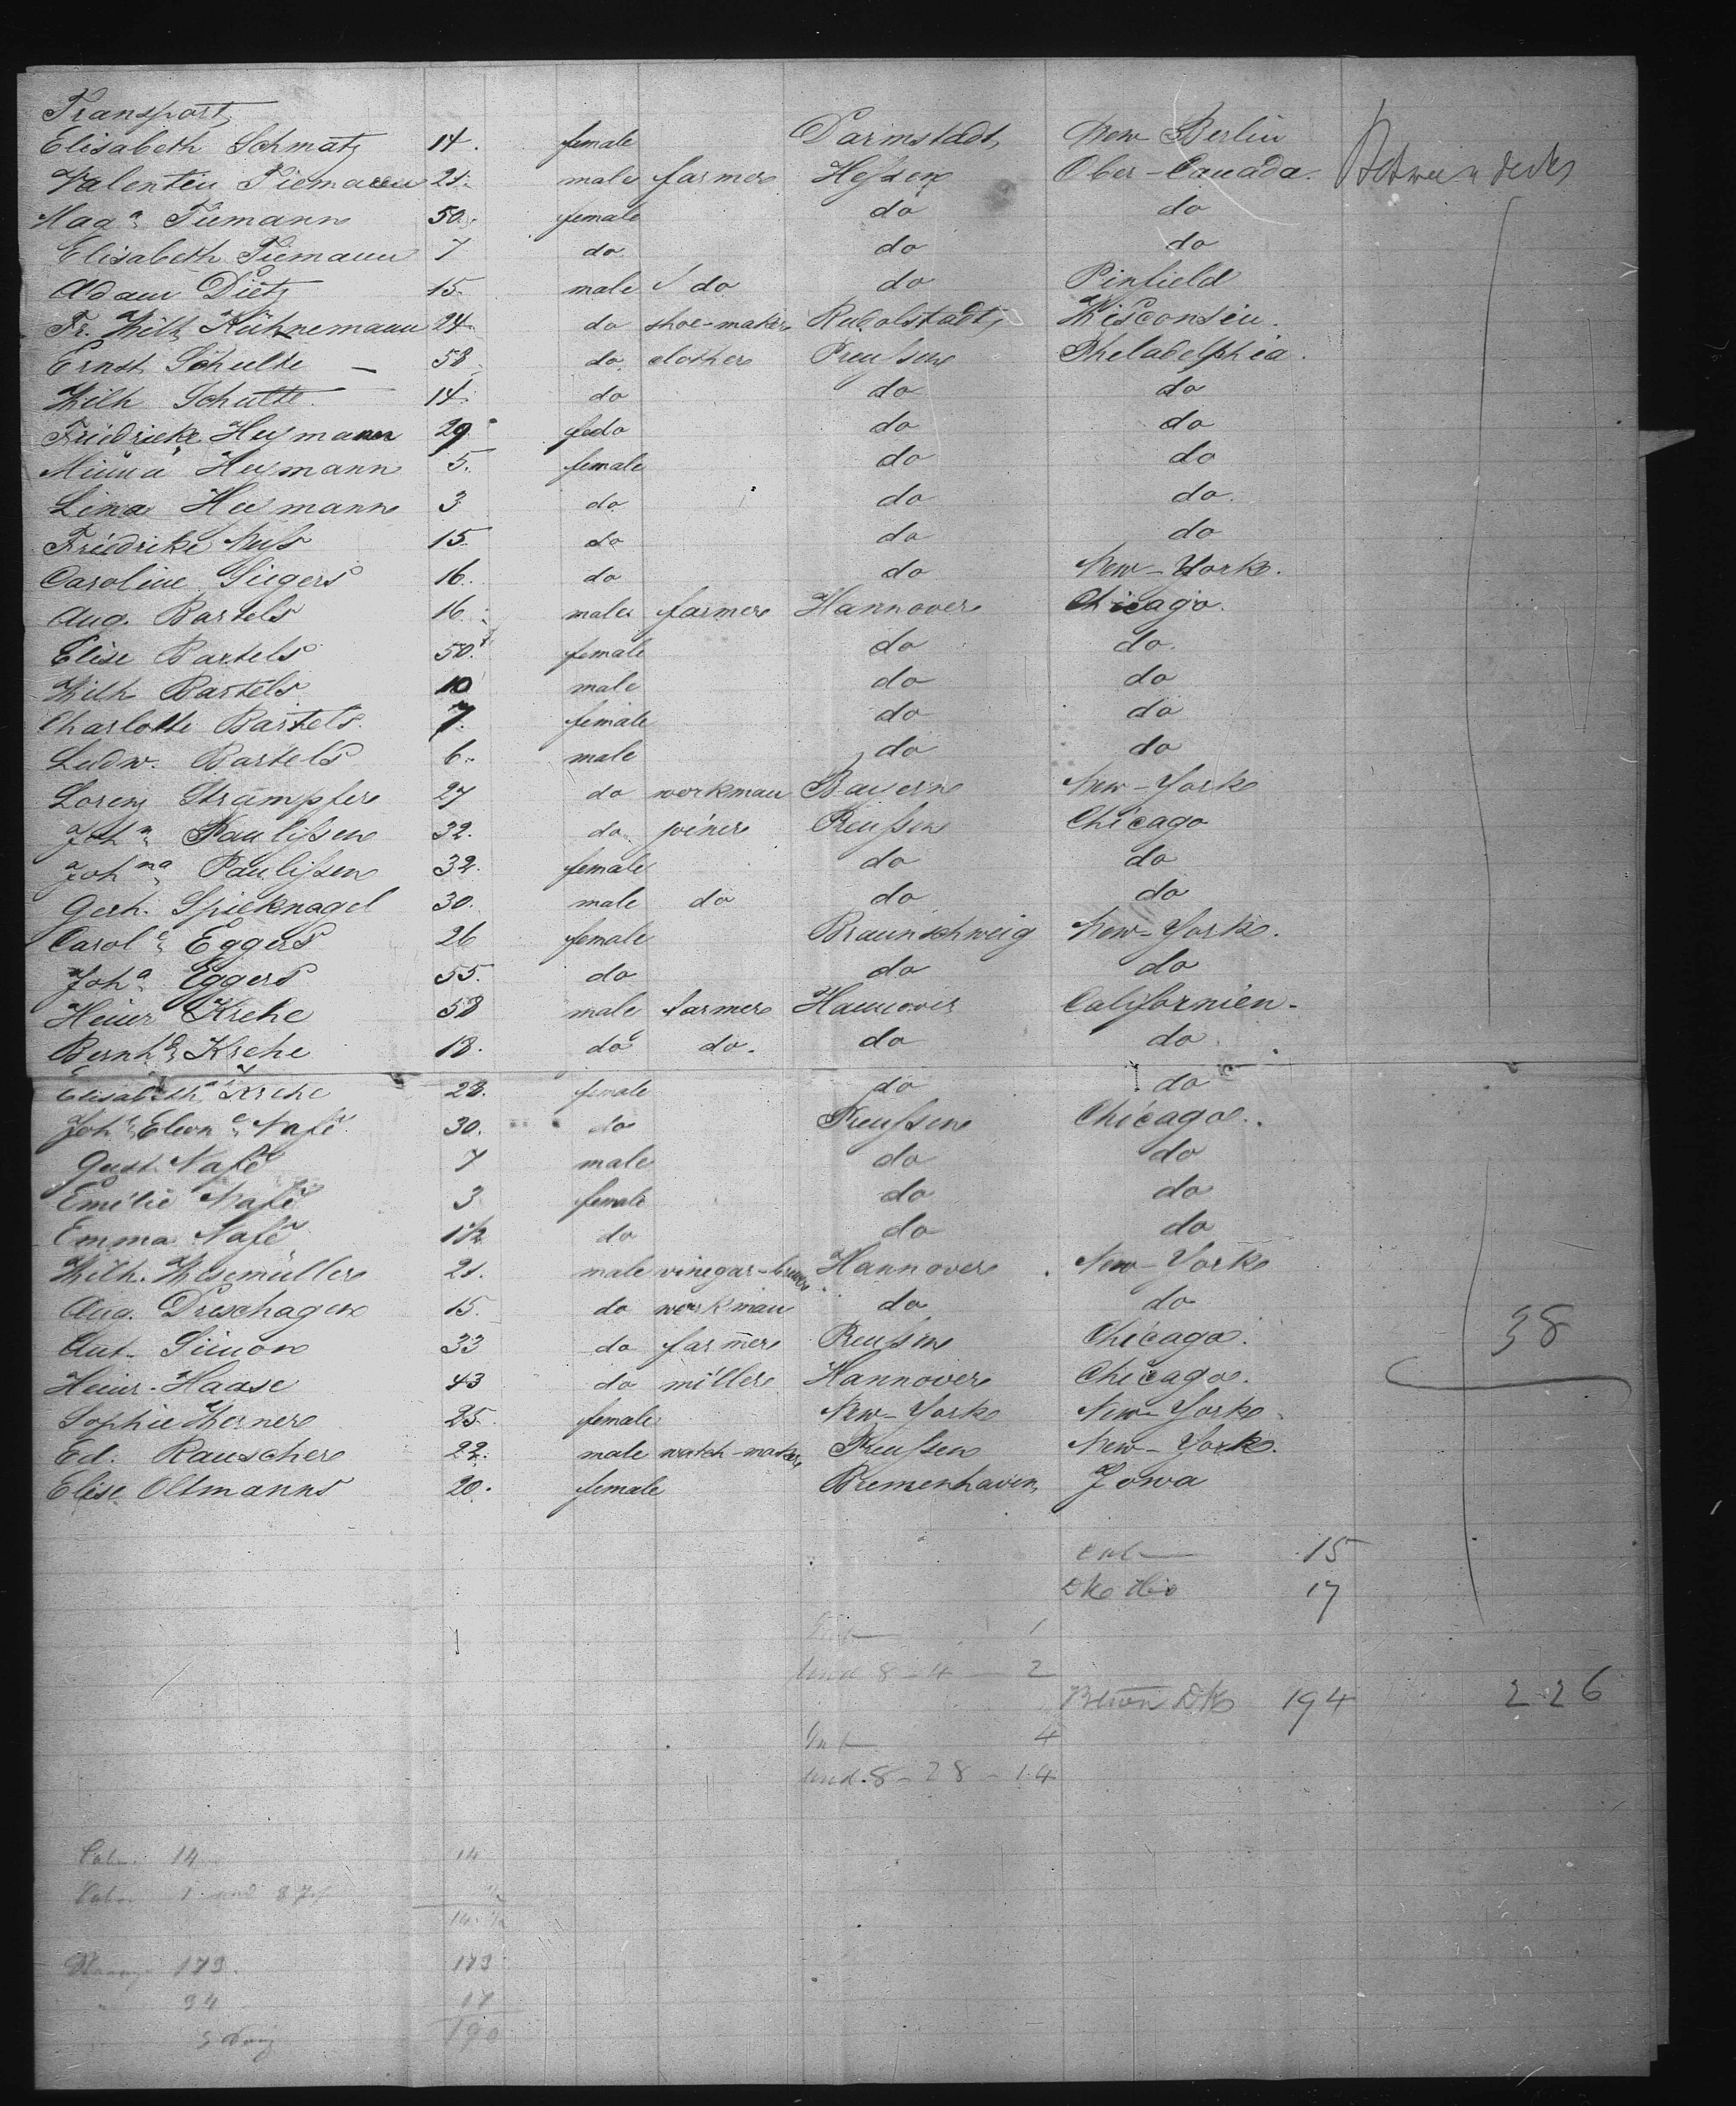 Transport
Elisabeth Schmatz 14. female Darmstadt, New Berlin
Valentin Tiemann 21. male farmer Hessen Ober-Canada. Between decks
Mag.ª Tiemann 50. female do do
Elisabeth Tiemann 7 do do do
Adam Dietz 15. male do do Pinfield
Fr. Wilh. Kühnemann 24. do shoe-maker Rudolstadt, Wisconsin.
Ernst Schulte – 58. do. clother Preußen Pheladelphia.
Wilh Schulte 14. do do do
Friedrieke Heymann 29. fedo do do
Minna Heymann 5. female do do
Lina Heymann 3 do do do.
Friedrike Neiß 15. do do do
Caroline Siegers 16. do do New-York.
Aug. Bartels 16. male farmer Hannover Chicago.
Elise Bartels 50. female do do.
Wilh Bartels 10 male do do
Charlotte Bartels. 7. female do do
Ludw. Bartels 6. male do do
Lorenz Strampfer 27 do workman Bayern New-York
Joh.n Paulißen 32. do joiner Preußen Chicago
Joh.na Paulißen 32. female do do
Gerh. Spieknagel 30. male do do do
Carol.e Eggers 26 female Braunschweig New-York.
Joh.a Eggers 55. do do do
Heinr Krehe 58 male farmer Hannover Californien.
Bernh.d Krehe 18. do do. do do.
Elisabeth Krehe 28. female do do
Joh.e Eleon.e Nafe 30. do Preußen Chicago.
Gust. Nafe 7 male do do
Emilie Nafe 3 female do do
Emma Nafe 1½ do do do
Wilh. Wesemüller 21. male vinegar-brewer Hannover New-York
Aug. Dreschagen 15. do workman do do
Ant. Simon 33 do farmer Preußen Chicago. 38
Heinr. Haase 43 do miller Hannover Chicago.
Sophie Werner 25. female New-York New-York.
Ed. Rauscher 22. male watch-maker Preußen New-York.
Elise Oltmanns 20. female Bremenhaven, Jowa
15
17
1
und 8-4-2
Betwn Dk 194 226
4
und. 8-28-14
Cab. 14 14
179. 179
94 17
190